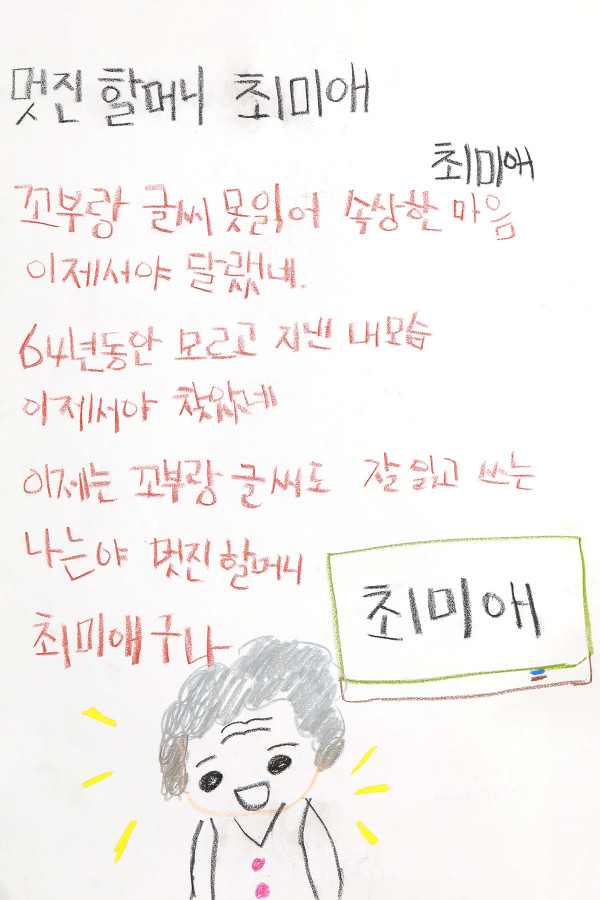 멋진 할머니 최미애
최미애
꼬부랑 글씨 못읽어 속상한 마음
이제서야 달랬네.
64년동안 모르고 지낸 내모습
이제서야 찾았네
이제는 꼬부랑 글씨도 잘 읽고 쓰는
나는야 멋진할머니
최미애구나
최미애